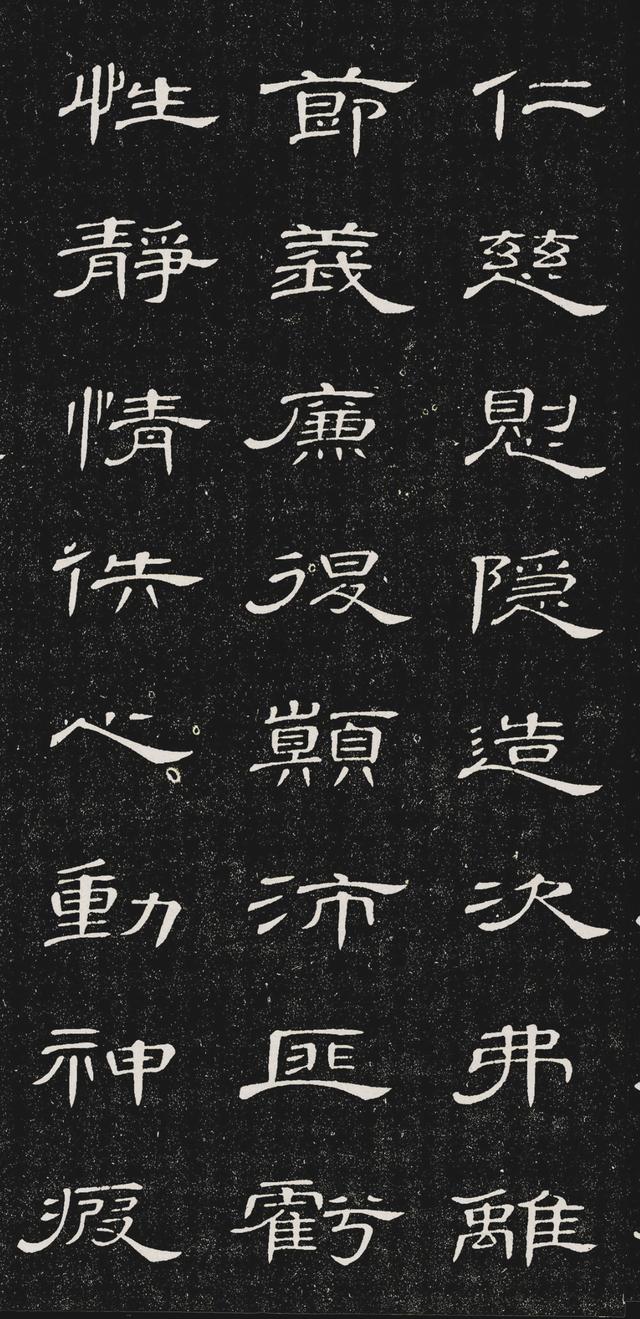 仁慈惻隐造次弗離
節義廉退顛沛匪虧
性靜情佚心動神疲